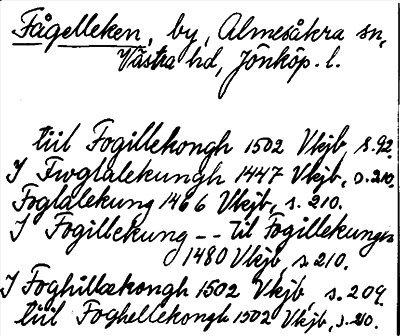 Fågelleken, by, Almesåkra sn,
Västra hd, Jönköp. l.
tiil Fogillekongh 1502 Vkjb, s.92.
J Fwglalekungh 1447 Vkjb, s.210.
Foglalekung 1466 Vkjb, s. 210.
J Fogillekung -- Til Fogillekungx
1480 Vkjb, s 210.
J Foghillækongh 1502 Vkjb, s. 209.
tiil Foghellekongh 1502 Vkjb, s.210.